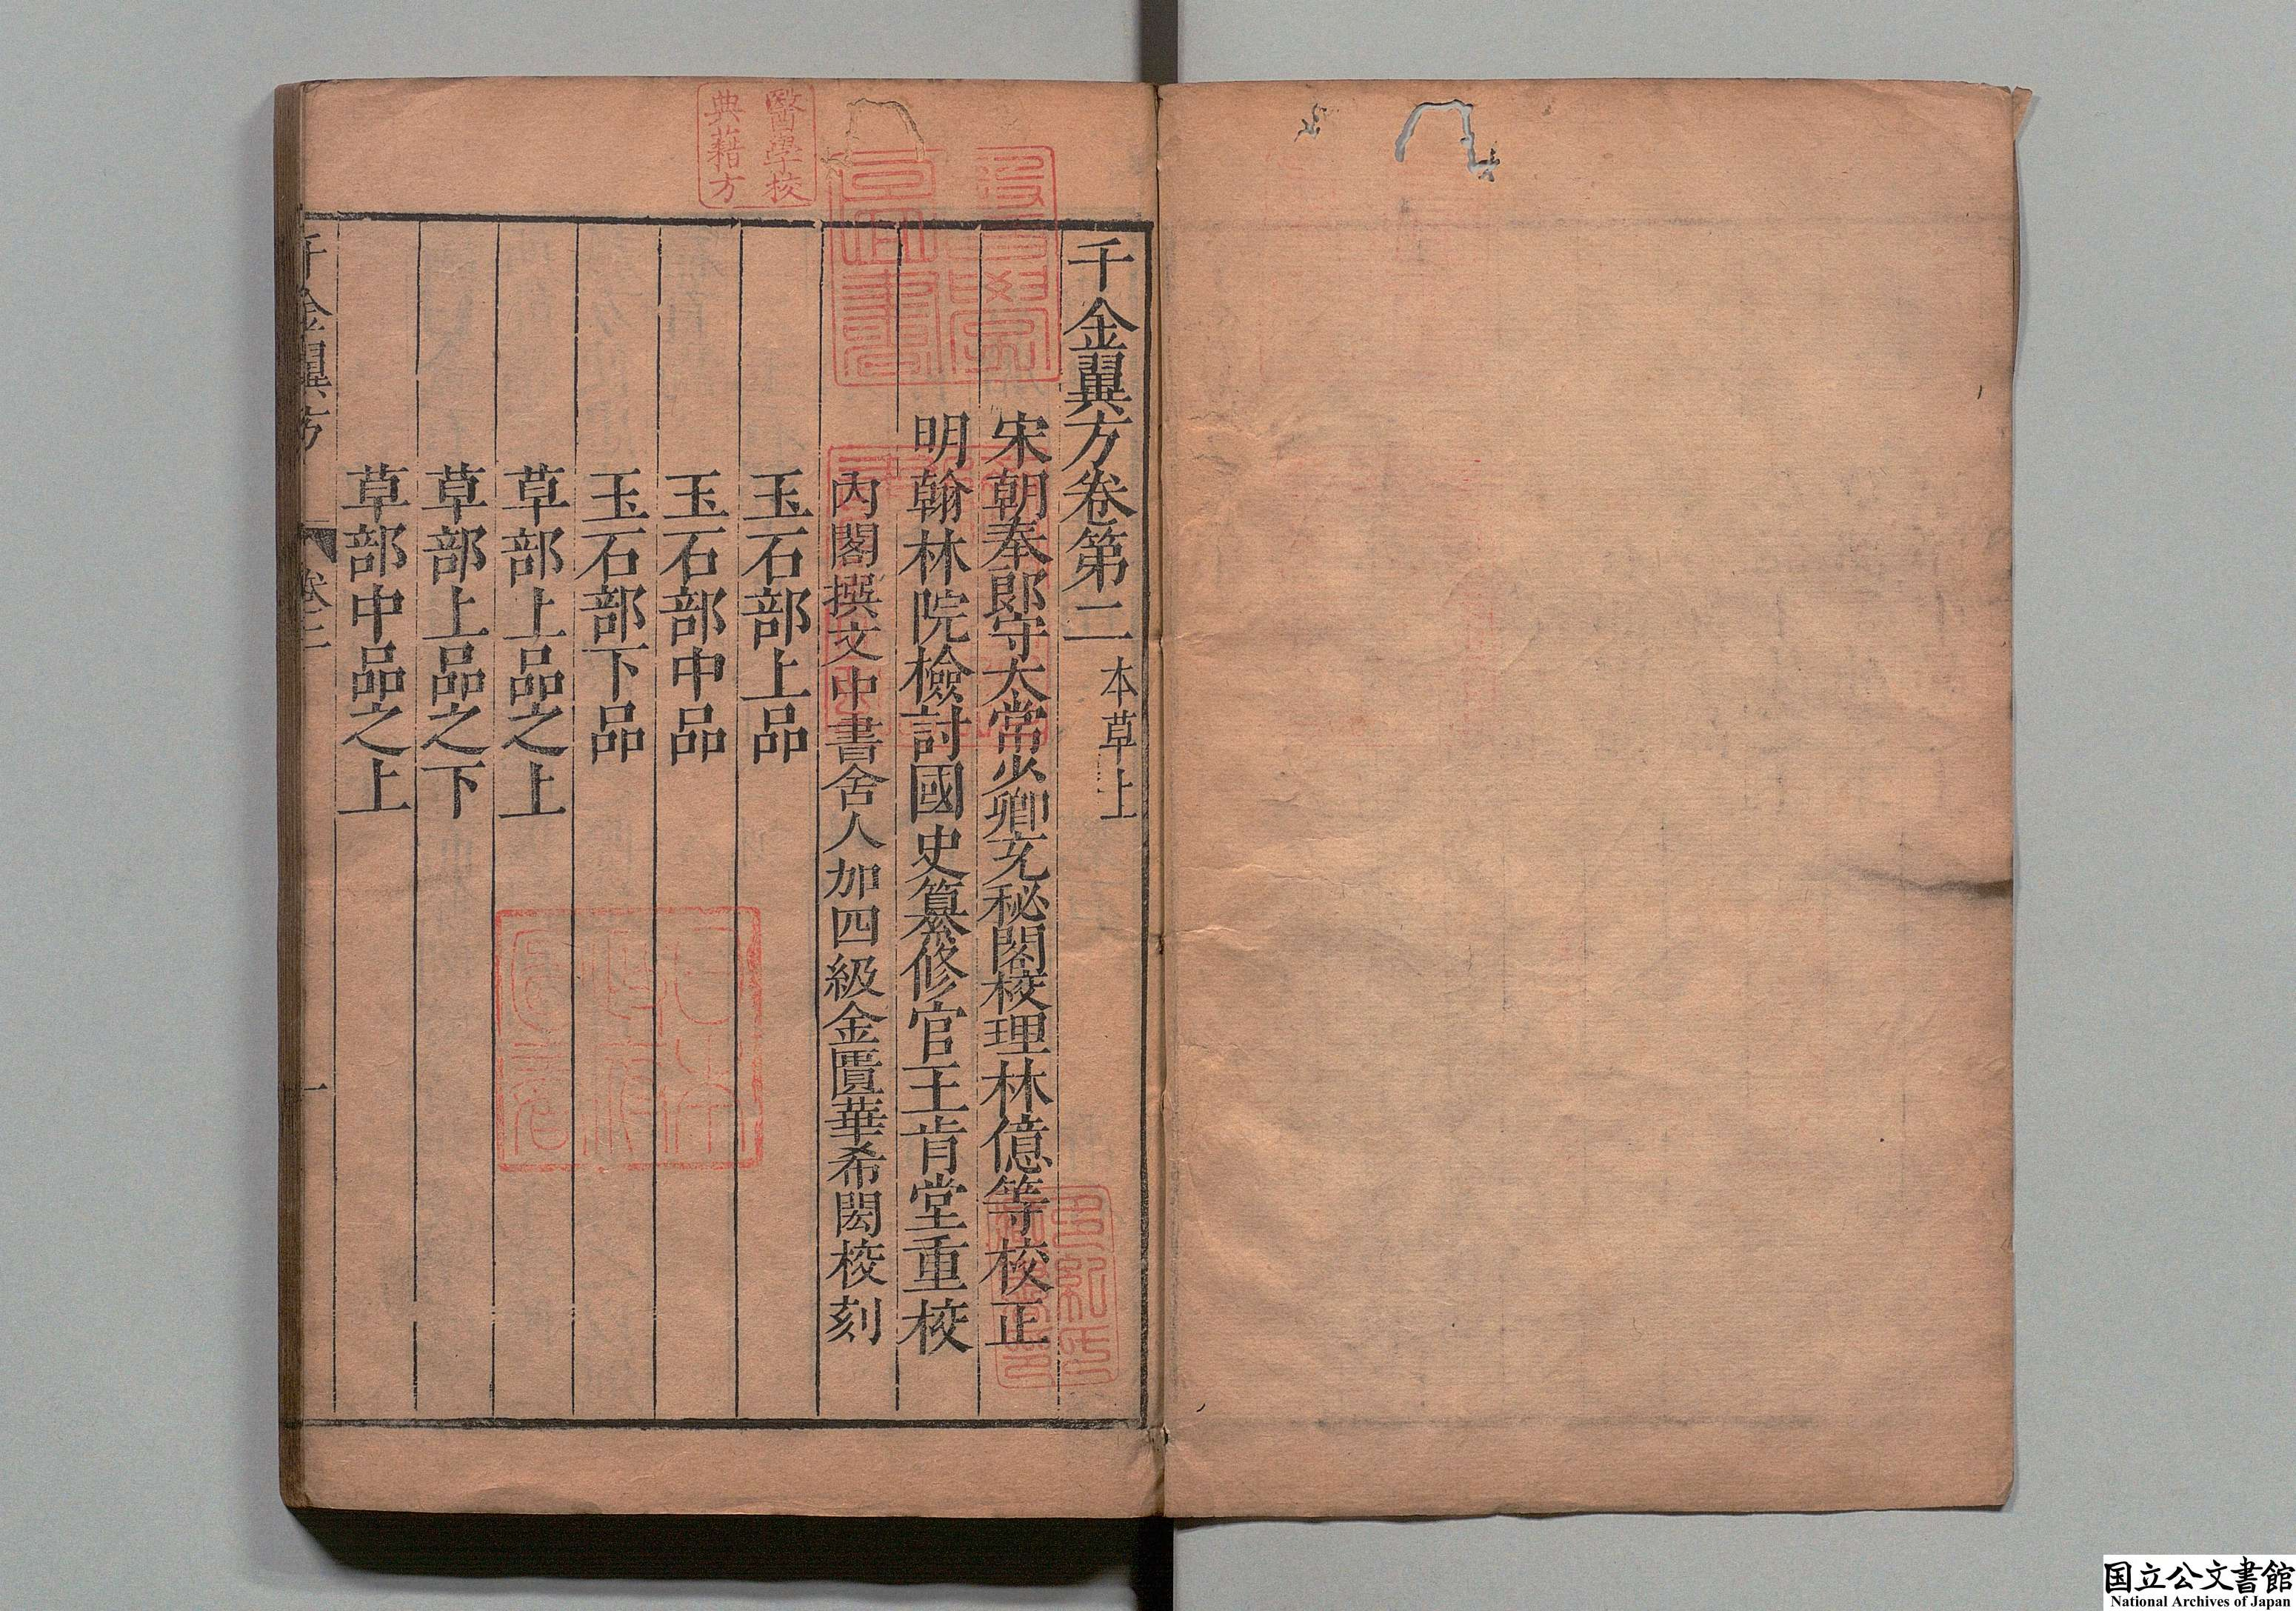 千金翼方卷第二 本草上
宋朝奉郎守太常少卿充秘閣校理林億等校正
明翰林院檢討國史纂修官王肯堂重校
內閣撰文中書舍人加四級金匱華希閎校刻
玉石部上品
玉石部中品
玉石部下品
草部上品之上
草部上品之下
草部中品之上
千金翼方 卷二 一
醫學校
典藉方
国立公文書館
National Archives of Japan